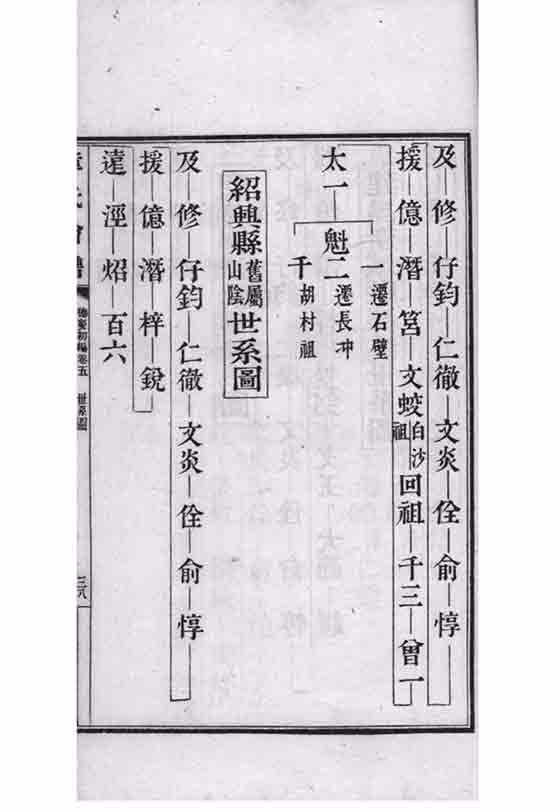 及—修—仔鈞—仁徹—文炎—佺—俞—惇
援—億—潛—筥—文蛟白沙祖—回祖—千三—曾一
太一
一遷石壁
魁二遷長冲
千胡村祖
紹興縣舊屬山陰世系圖
及—修—仔鈞—仁徹—文炎—佺—俞—惇
援—億—潛—梓—銳
達—涇—炤—百六
章氏會譜
德慶初編卷五 世系圖
三八